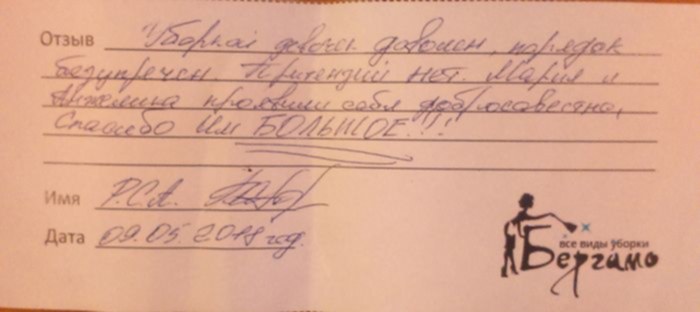 Отзыв Уборкой очень доволен, порядок
безупречен. Претензий нет. Мария и
Анжелика проявили себя добросавестно,
Спасибо Им БОЛЬШОЕ!!!
Имя Р.С.А.
Дата 09.05.2018 год.
все виды уборки
Бергамо